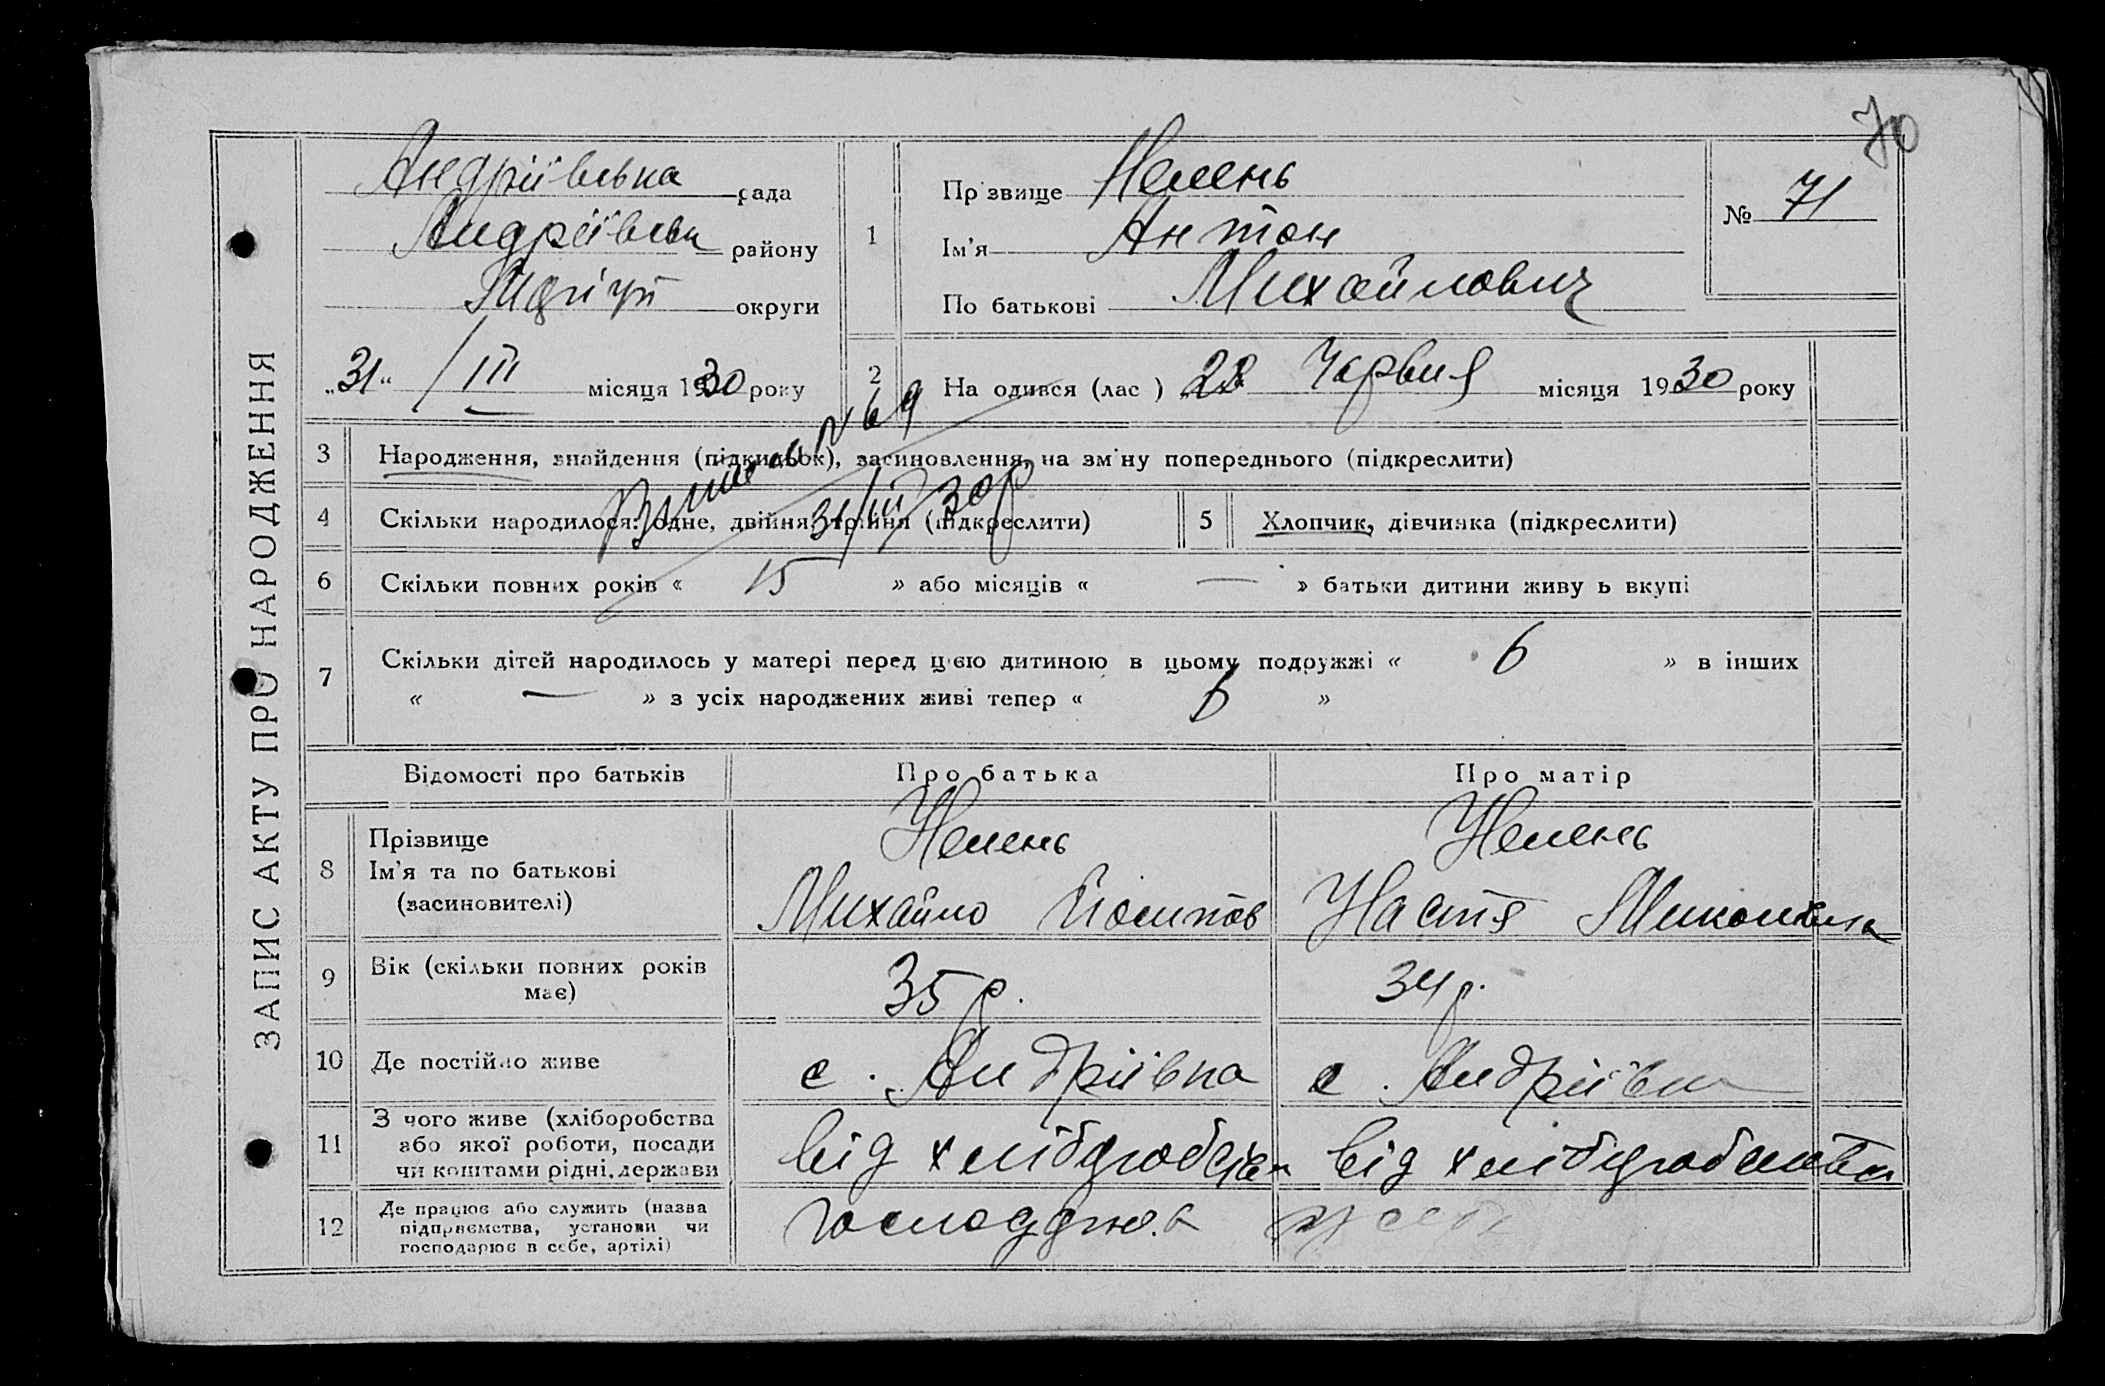 70
ЗАПИС АКТУ ПРО НАРОДЖЕННЯ
Андріївська рада
Андріївськ району
округи
„31“ / III місяця 1930 року
1
Прізвище Нелень
Ім’я Антон
По батькові Михайлович
№ 71
2 На одився (лас ) 28 Червня місяця 1930 року
3 Народження, знайдення (підкидьок), засиновлення, на зміну попереднього (підкреслити)
№ 69
31/III 30р
4 Скільки народилося: одне, двійня, трійня (підкреслити)
5 Хлопчик, дівчинка (підкреслити)
6 Скільки повних років « 15 » або місяців « — » батьки дитини живу ь вкупі
7 Скільки дітей народилось у матері перед цією дитиною в цьому подружжі « 6 » в інших
« — » з усіх народжених живі тепер « 6 »
Відомості про батьків Про батька Про матір
8 Прізвище
Ім’я та по батькові
(засиновителі)
Нелень
Михайло Йосипов
Нелень
Настя Миколаївна
9 Вік (скільки повних років
має)
35 р.
34 р.
10 Де постійно живе
с. Андріївка
с. Андріївка
11 З чого живе (хліборобства
або якої роботи, посади
чи коштами рідні, держави
від хліборобства
від хліборобства
12 Де працює або служить (назва
підприємства, установи чи
господарює в себе, артілі)